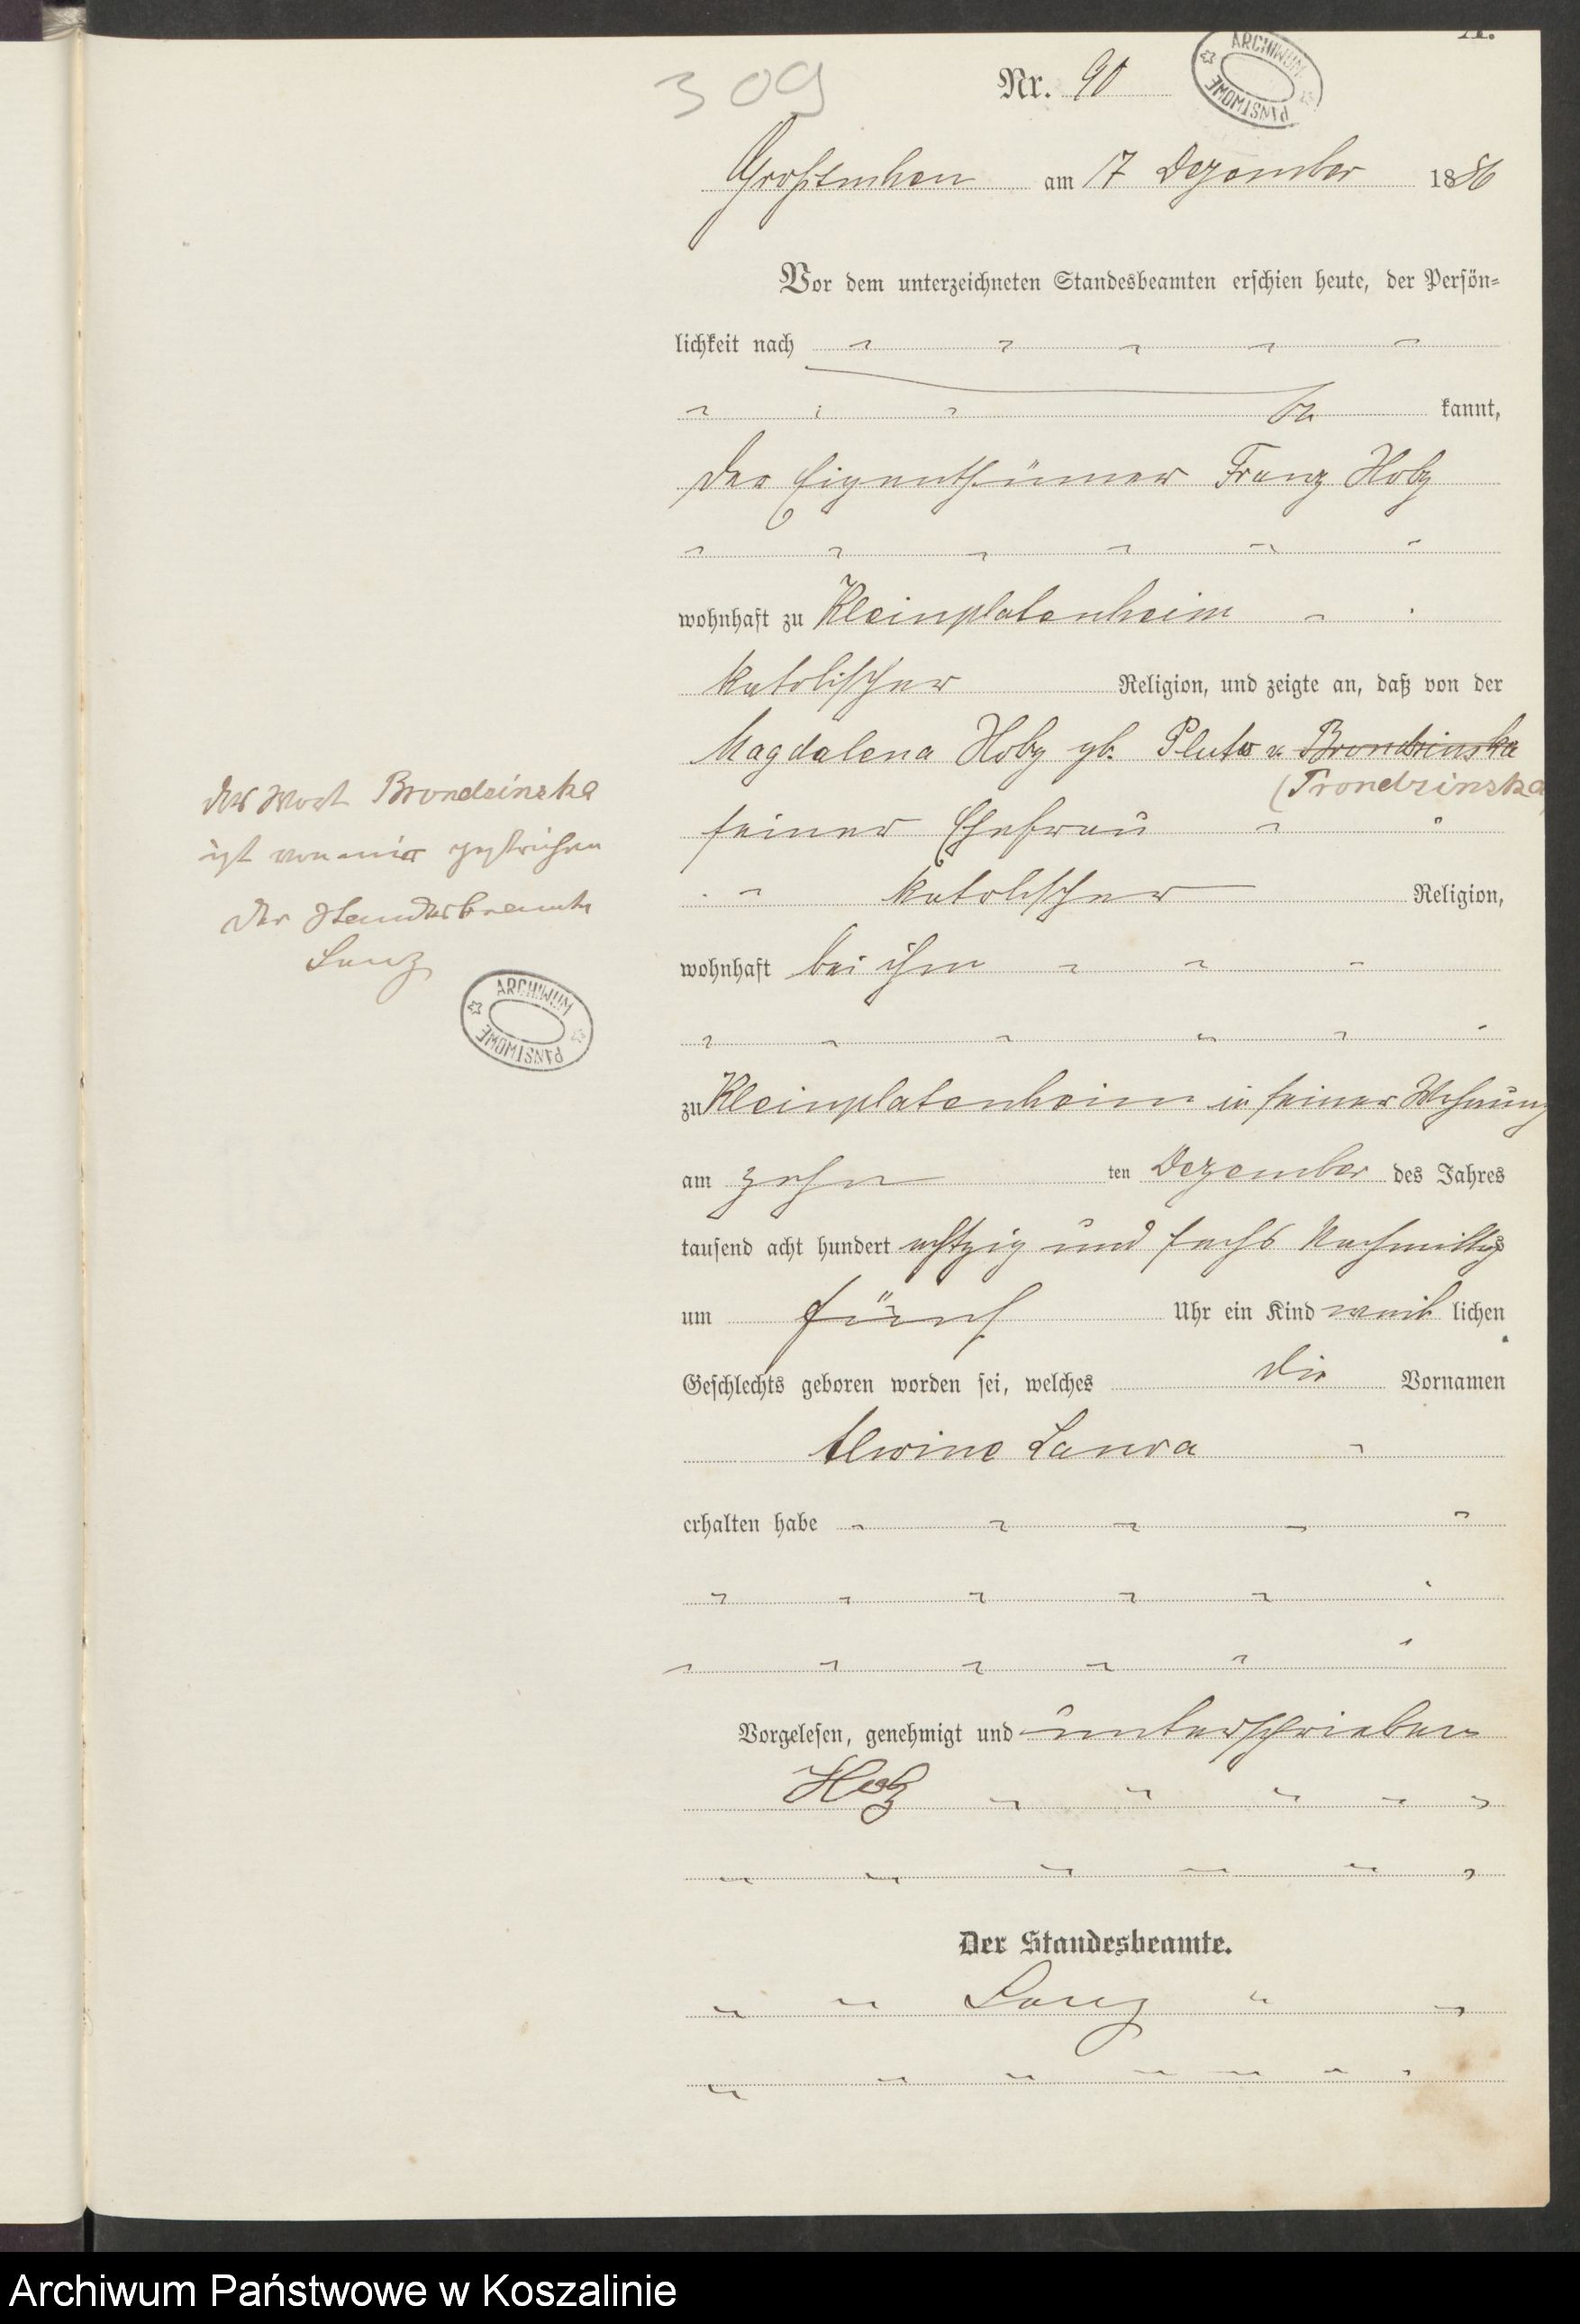 A.
309
Nr. 90
ARCHIWUM PAŃSTWOWE
Großtuchen am 17 Dezember 1886
Vor dem unterzeichneten Standesbeamten erschien heute, der Persön-
lichkeit nach
be kannt,
der Eigenthümer Franz
wohnhaft zu Kleinplatenheim
katolischer Religion, und zeigte an, daß von der
Magdalena gb. v. Brondzinska
(Trondzinska
seiner Ehefrau
katolischer Religion,
wohnhaft bei ihm
zu Kleinplatenheim in seiner Wohnung
am zehn ten Dezember des Jahres
tausend acht hundert achtzig und sechs Nachmittags
um fünf Uhr ein Kind weib lichen
Geschlechts geboren worden sei, welches die Vornamen
Alwine Laura
erhalten habe
Vorgelesen, genehmigt und unterschrieben
Der Standesbeamte.
das Wort Brondzinska
ist von mir gestrichen
Der Standesbeamte
ARCHIWUM PAŃSTWOWE
Archiwum Państwowe w Koszalinie